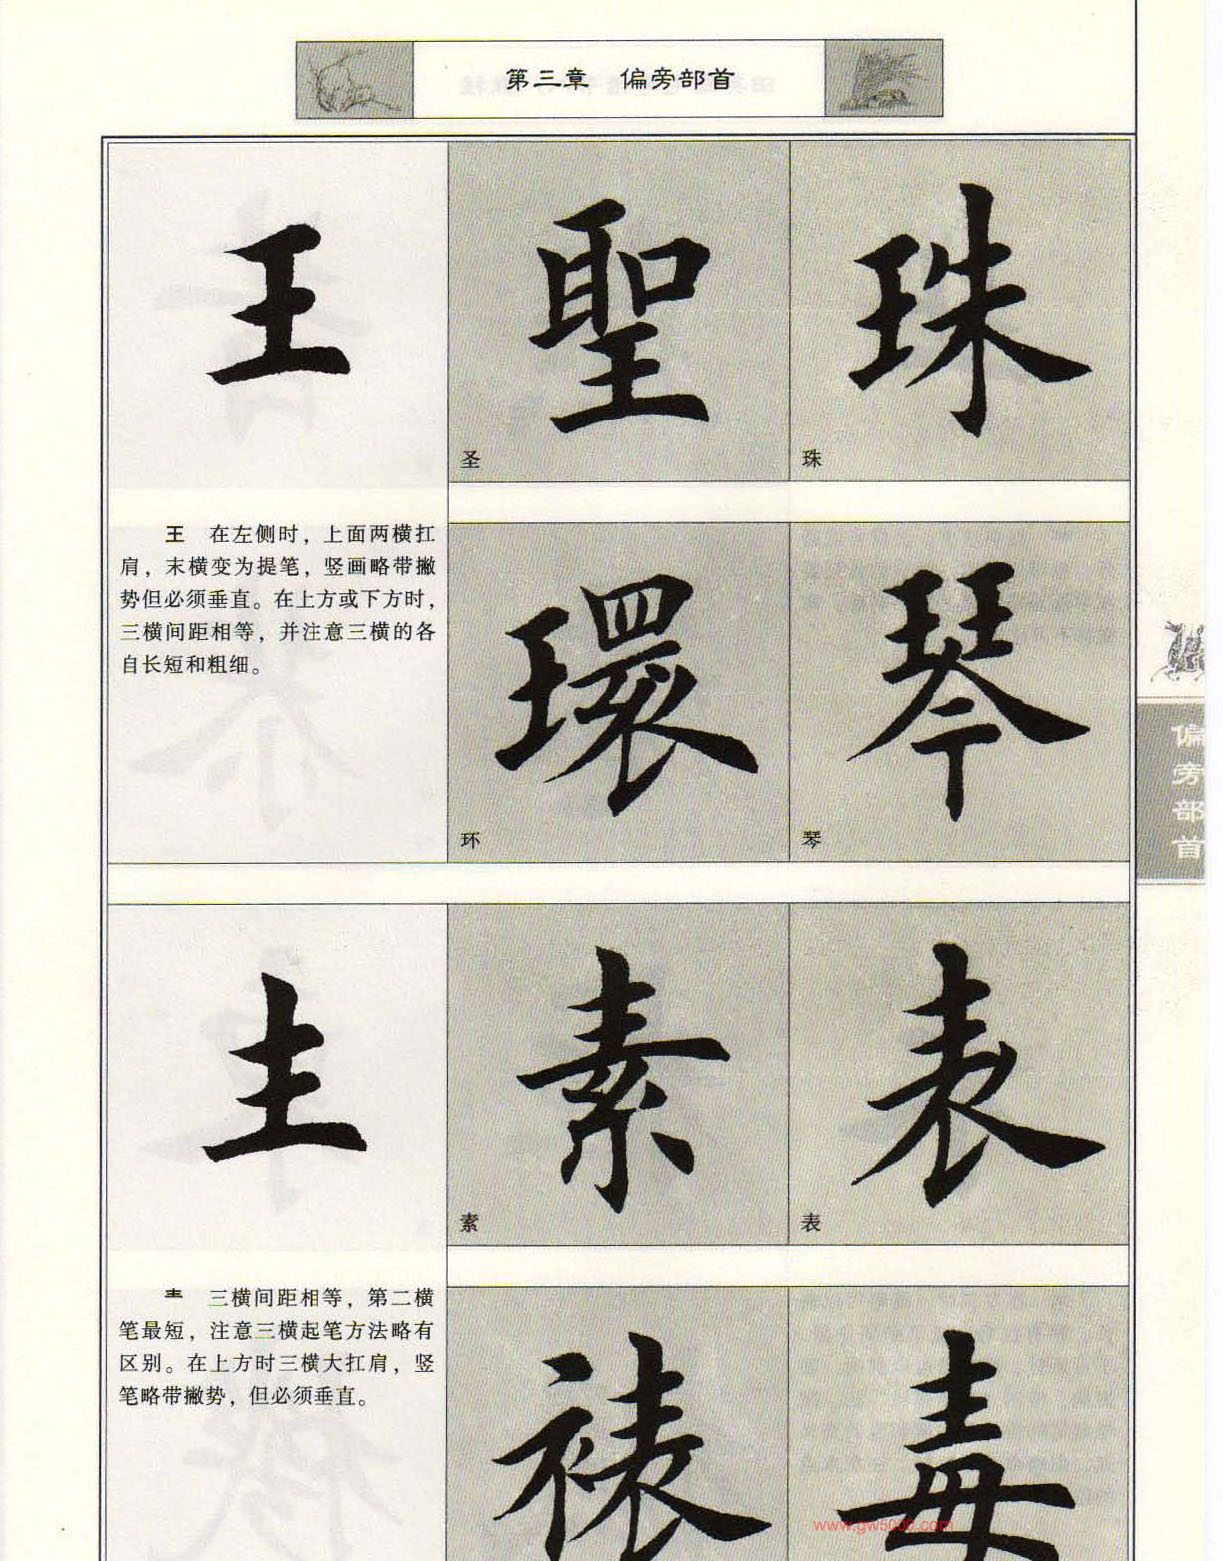 第三章　偏旁部首
王
聖
珠
圣
珠
王　在左侧时，上面两横扛
肩，末横变为提笔，竖画略带撇
势但必须垂直。在上方或下方时，
三横间距相等，并注意三横的各
自长短和粗细。
環
琴
环
琴
偏旁部首
龶
素
表
素
表
龶　三横间距相等，第二横
笔最短，注意三横起笔方法略有
区别。在上方时三横大扛肩，竖
笔略带撇势，但必须垂直。
裱
毒
www.gw5000.com